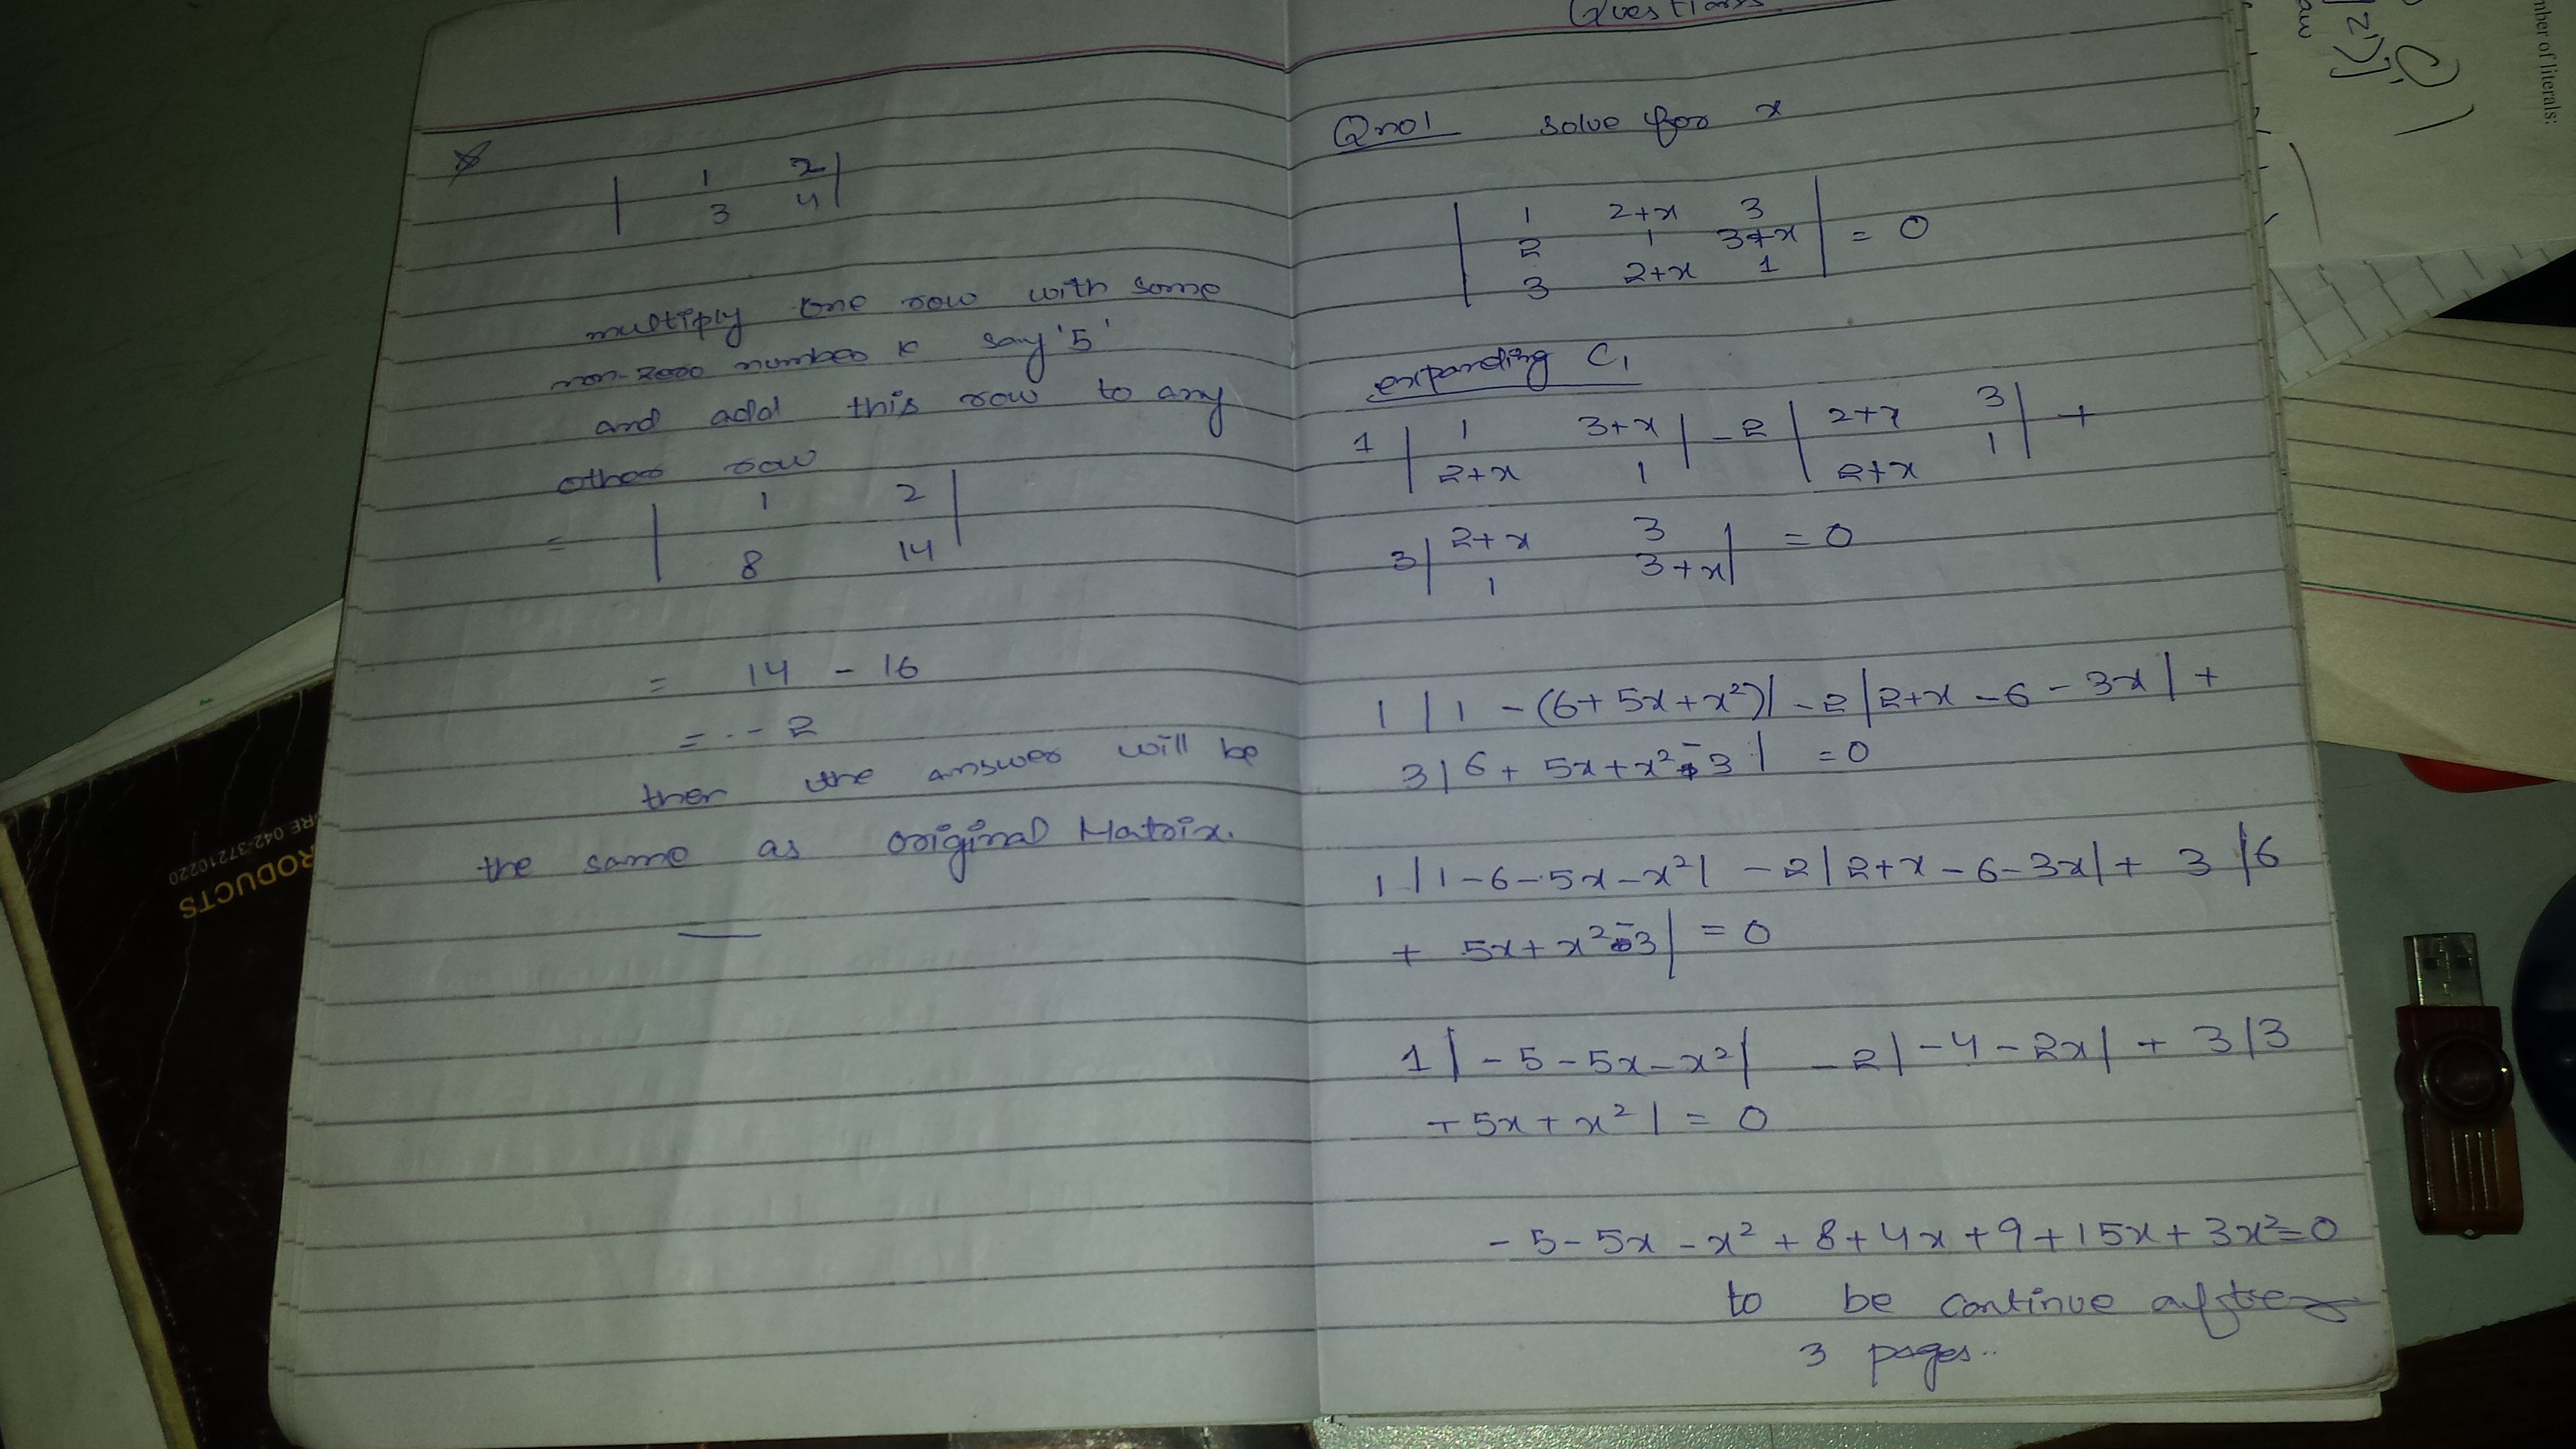 | 1 2 |
| 3 4 |
multiply one row with some
non-zero number k say '5'
and add this row to any
other row
= | 1 2 |
| 8 14 |
= 14 - 16
= - 2
then the answer will be
the same as original Matrix.
Questions
Qno1 solve for x
| 1 2+x 3 |
| 2 1 3+x | = 0
| 3 2+x 1 |
expanding C₁
1 | 1 3+x | -2 | 2+x 3 | +
| 2+x 1 | | 2+x 1 |
3 | 2+x 3 | = 0
| 1 3+x |
1 | 1 - (6+5x+x²)| -2 |2+x -6 -3x| +
3 | 6 + 5x+x²-3 | =0
1 | 1-6-5x-x² | -2 | 2+x-6-3x | + 3 | 6
+ 5x+x²-3 | = 0
1 | -5-5x-x² | -2 | -4-2x | + 3 | 3
+5x+x² | = 0
-5-5x-x²+8+4x+9+15x+3x²=0
to be continue after
3 pages..
mber of literals:
RODUCTS
RE 042-37210220